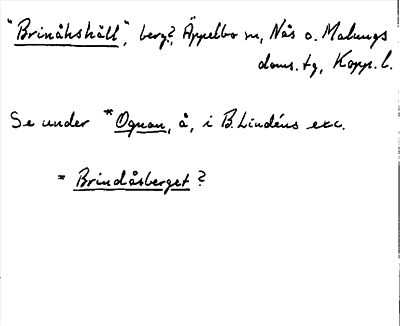 "Brinåhshäll", berg?, Äppelbo sn, Nås o. Malungs
doms. tg, Kopp. l.
Se under *Ognan, å, i B. Lindéns exc.
= Brindåsberget?